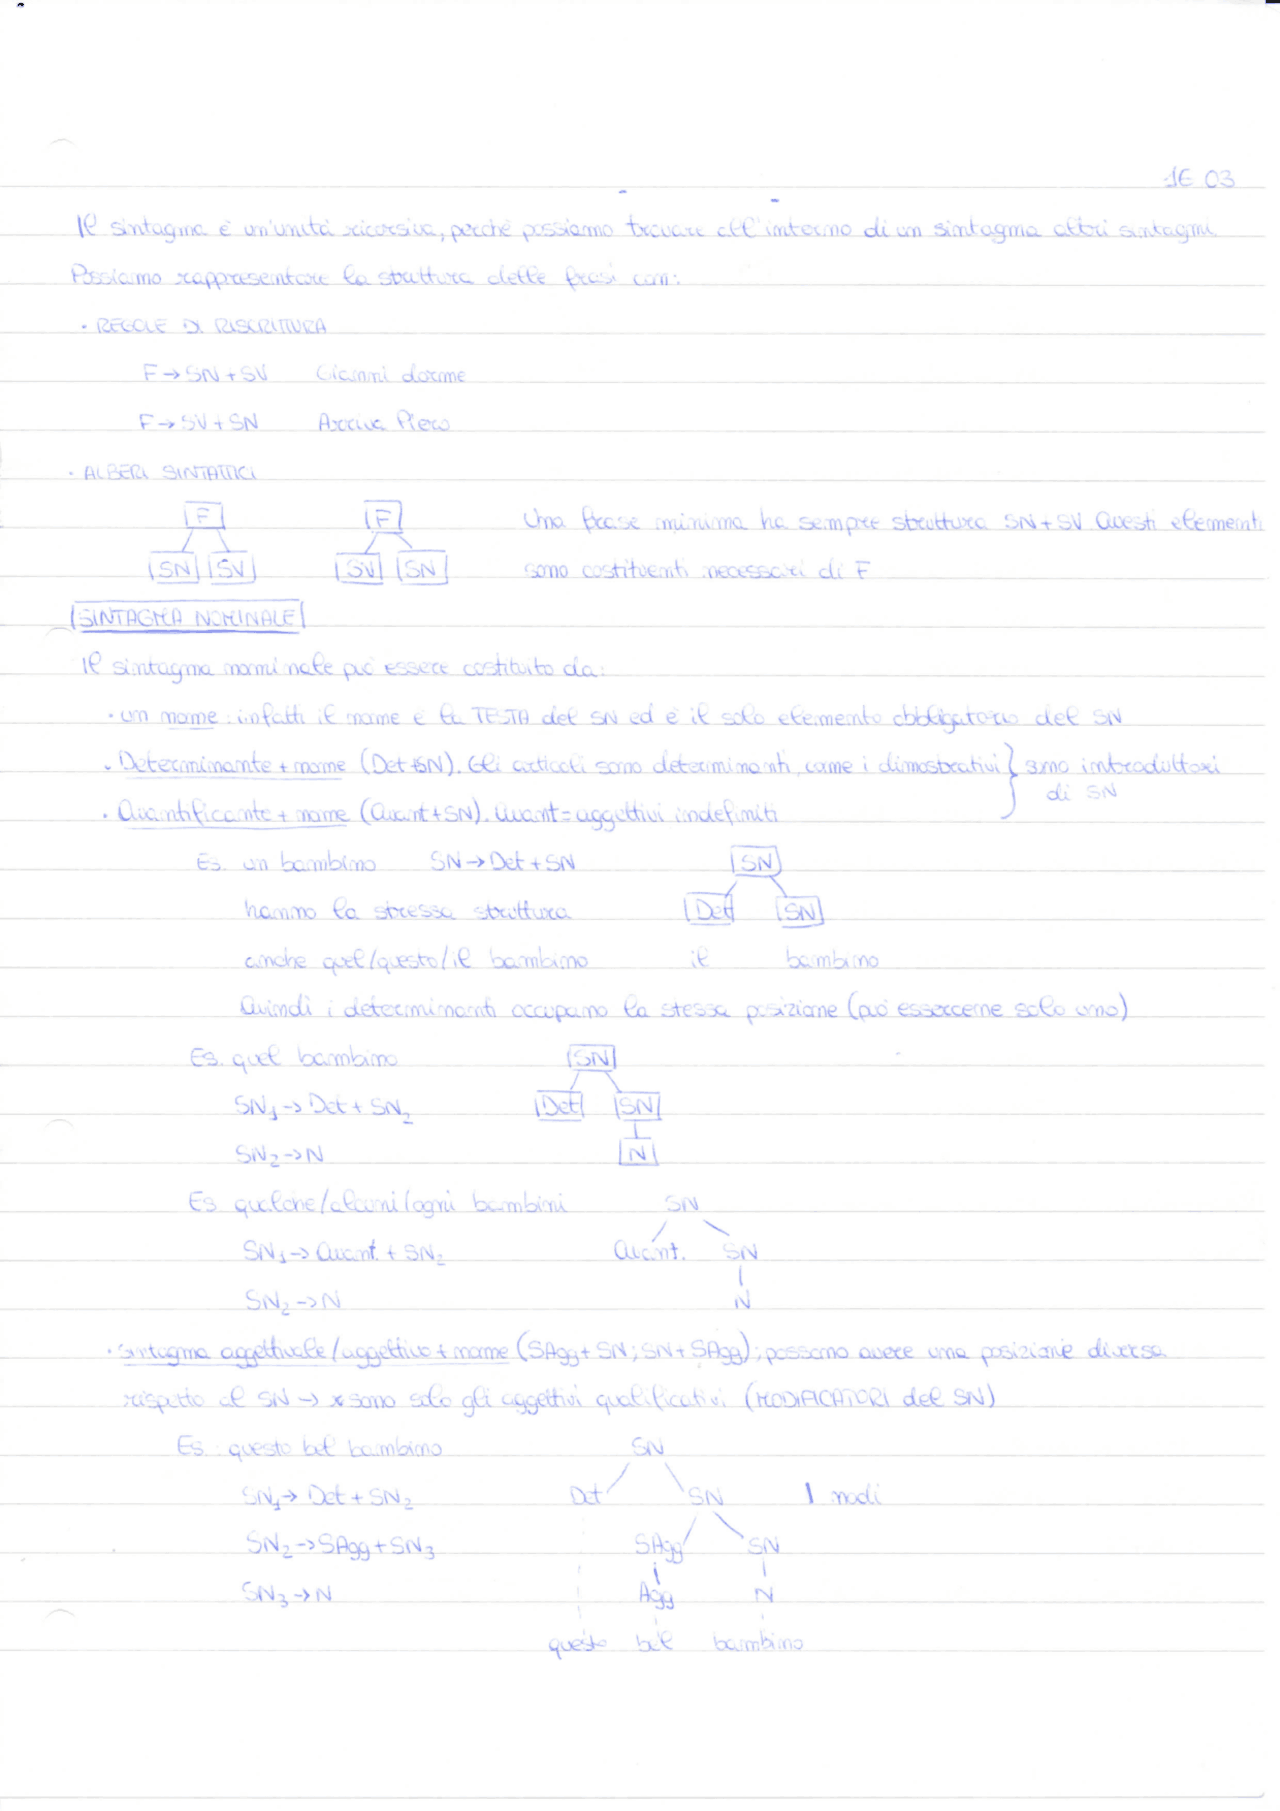 1E 03
Il sintagma è un'unità ricorsiva, perché possiamo trovare all'interno di un sintagma altri sintagmi.
Possiamo rappresentare la struttura delle frasi con:
· REGOLE DI RISCRITTURA
F → SN + SV Gianni dorme
F → SV + SN Arriva Piero
· ALBERI SINTATTICI
F F Una frase minima ha sempre struttura SN + SV Questi elementi
SN SV SV SN sono costituenti necessari di F
SINTAGMA NOMINALE
Il sintagma nominale può essere costituito da:
· un nome: infatti il nome è la TESTA del SN ed è il solo elemento obbligatorio del SN
· Determinante + nome (Det + SN). Gli articoli sono determinanti, come i dimostrativi } sono introduttori
di SN
· Quantificante + nome (Quant + SN). Quant = aggettivi indefiniti
Es. un bambino SN → Det + SN SN
hanno la stressa struttura Det SN
anche quel/questo/il bambino il bambino
Quindi i determinanti occupano la stessa posizione (può essercene solo uno)
Es. quel bambino SN
SN₁ → Det + SN₂ Det SN
SN₂ → N N
Es. qualche/alcuni/ogni bambini SN
SN₁ → Quant. + SN₂ Quant. SN
SN₂ → N N
· Sintagma aggettivale/aggettivo + nome (SAgg + SN; SN + SAgg); possono avere una posizione diversa
rispetto al SN → sono solo gli aggettivi qualificativi (MODIFICATORI del SN)
Es. questo bel bambino SN
SN₁ → Det + SN₂ Det SN I nodi
SN₂ → SAgg + SN₃ SAgg SN
SN₃ → N Agg N
questo bel bambino